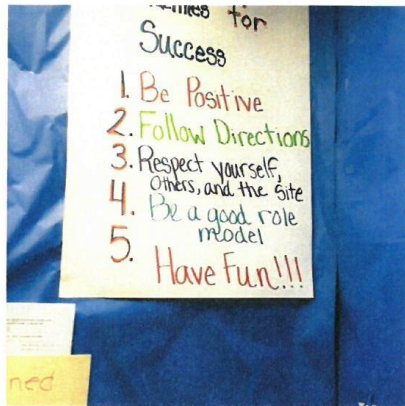 for
Success
1. Be Positive
2. Follow Directions
3. Respect yourself,
Others, and the Site
4. Be a good role
model
5. Have Fun!!!
ned